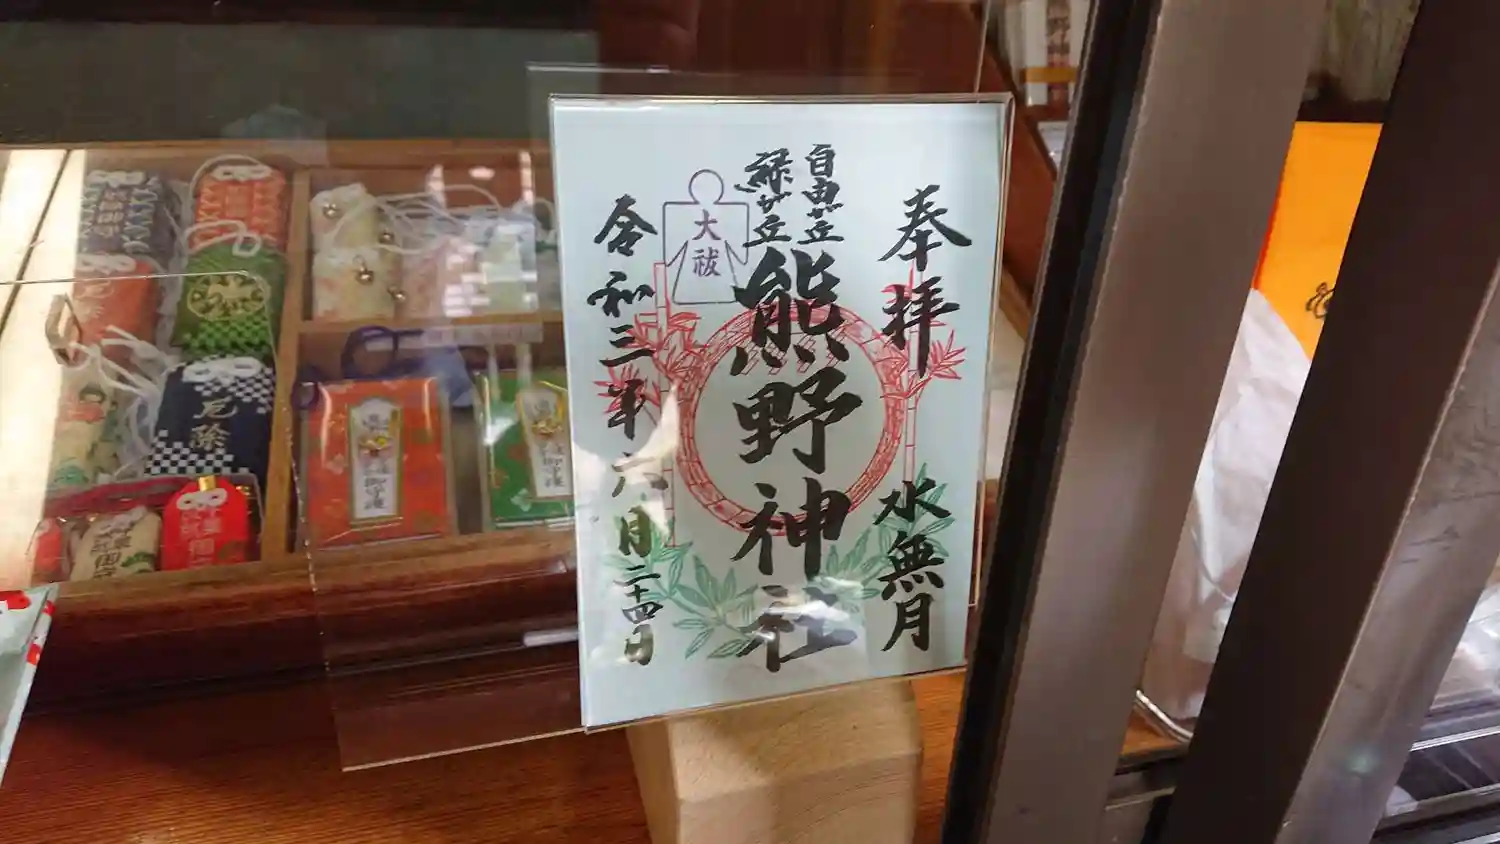 奉拝
水無月
自由が丘
緑が丘
熊野神社
大祓
令和三年六月二十四日
厄除